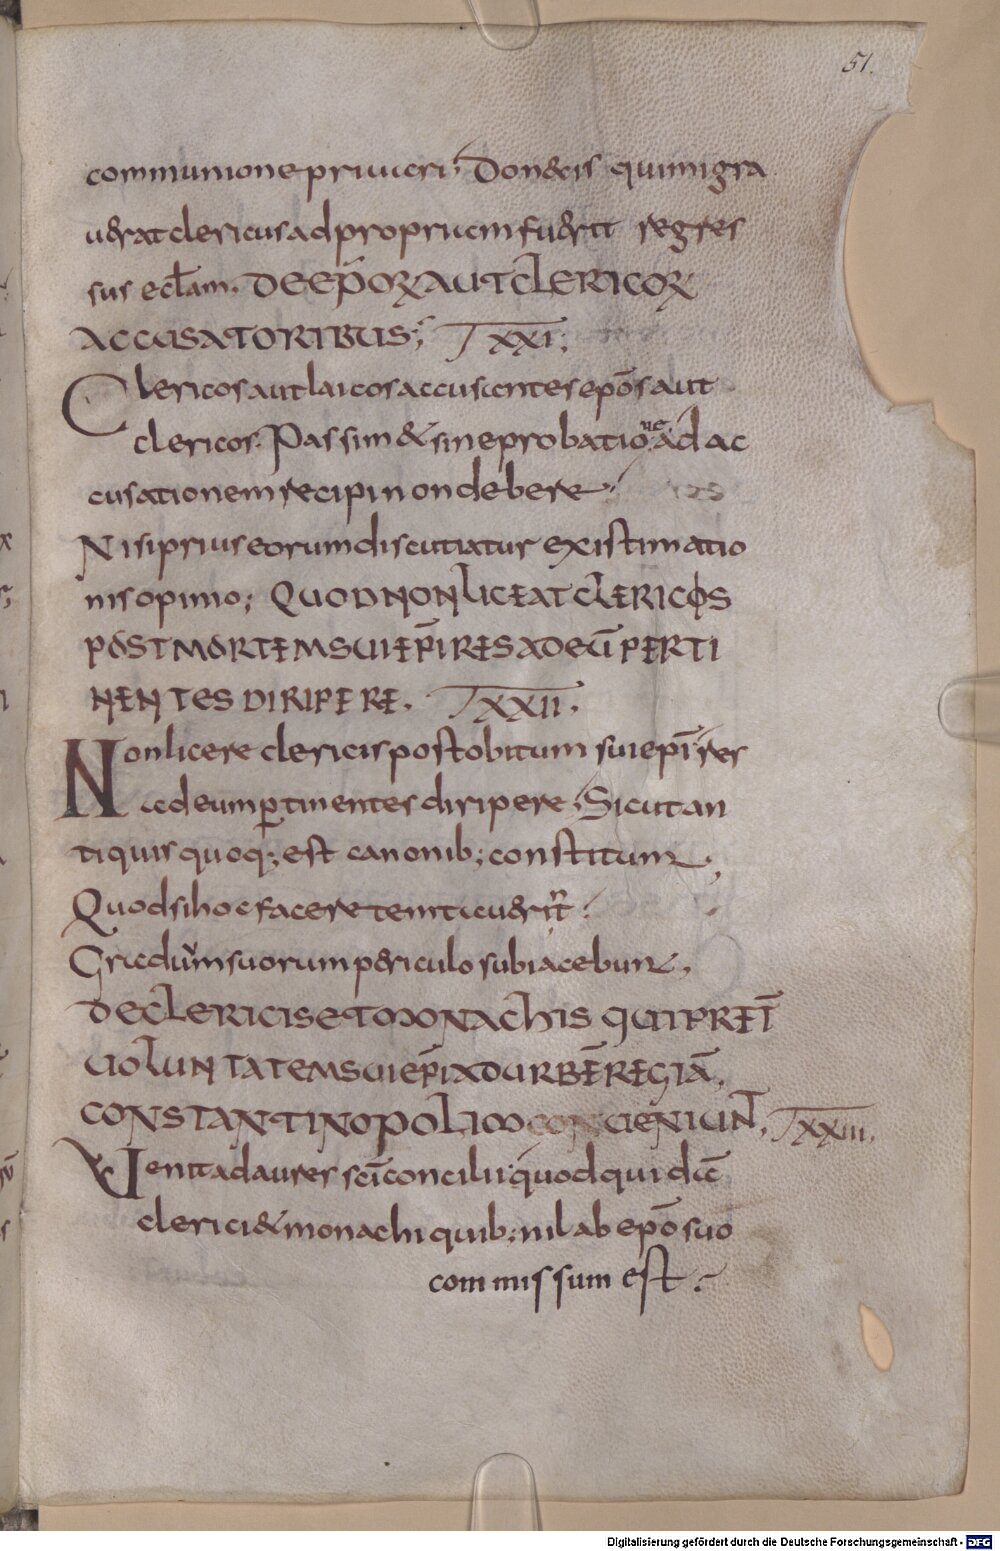 51.
communione privari; Donec is qui migra
verat clericus ad propriam fuerit regres
sus eclam. DE EPOR AUT CLERICOR
ACCUSATORIBUS; T XXI;
Clericos aut laicos accusantes epos aut
clericos. Passim & sine probatione ad ac
cusationem recipi non debere.
Nisi prius eorum discutiatur existimatio
nis opinio; QUOD NON LICEAT CLERICOS
POST MORTEM SUI EPI RES AD EU PERTI
NENTES DIRIPERE. T XXII.
Non licere clericis post obitum sui epi res
ad eum ptinentes diripere; Sicut an
tiquis quoq; est canonib; constitum;
Quod si hoc facere temtaverint.
Gradum suorum periculo subiacebunt,
DE CLERICIS ET MONACHIS QUI PRETER
VOLUNTATEM SUI EPI AD URBE REGIA,
CONSTANTINOPOLIM CONVENIUNT, T XXIII.
Venit ad aures sci concilii quod quidã
clerici & monachi quib; nil ab epo suo
commissum est.
Digitalisierung gefördert durch die Deutsche Forschungsgemeinschaft - DFG